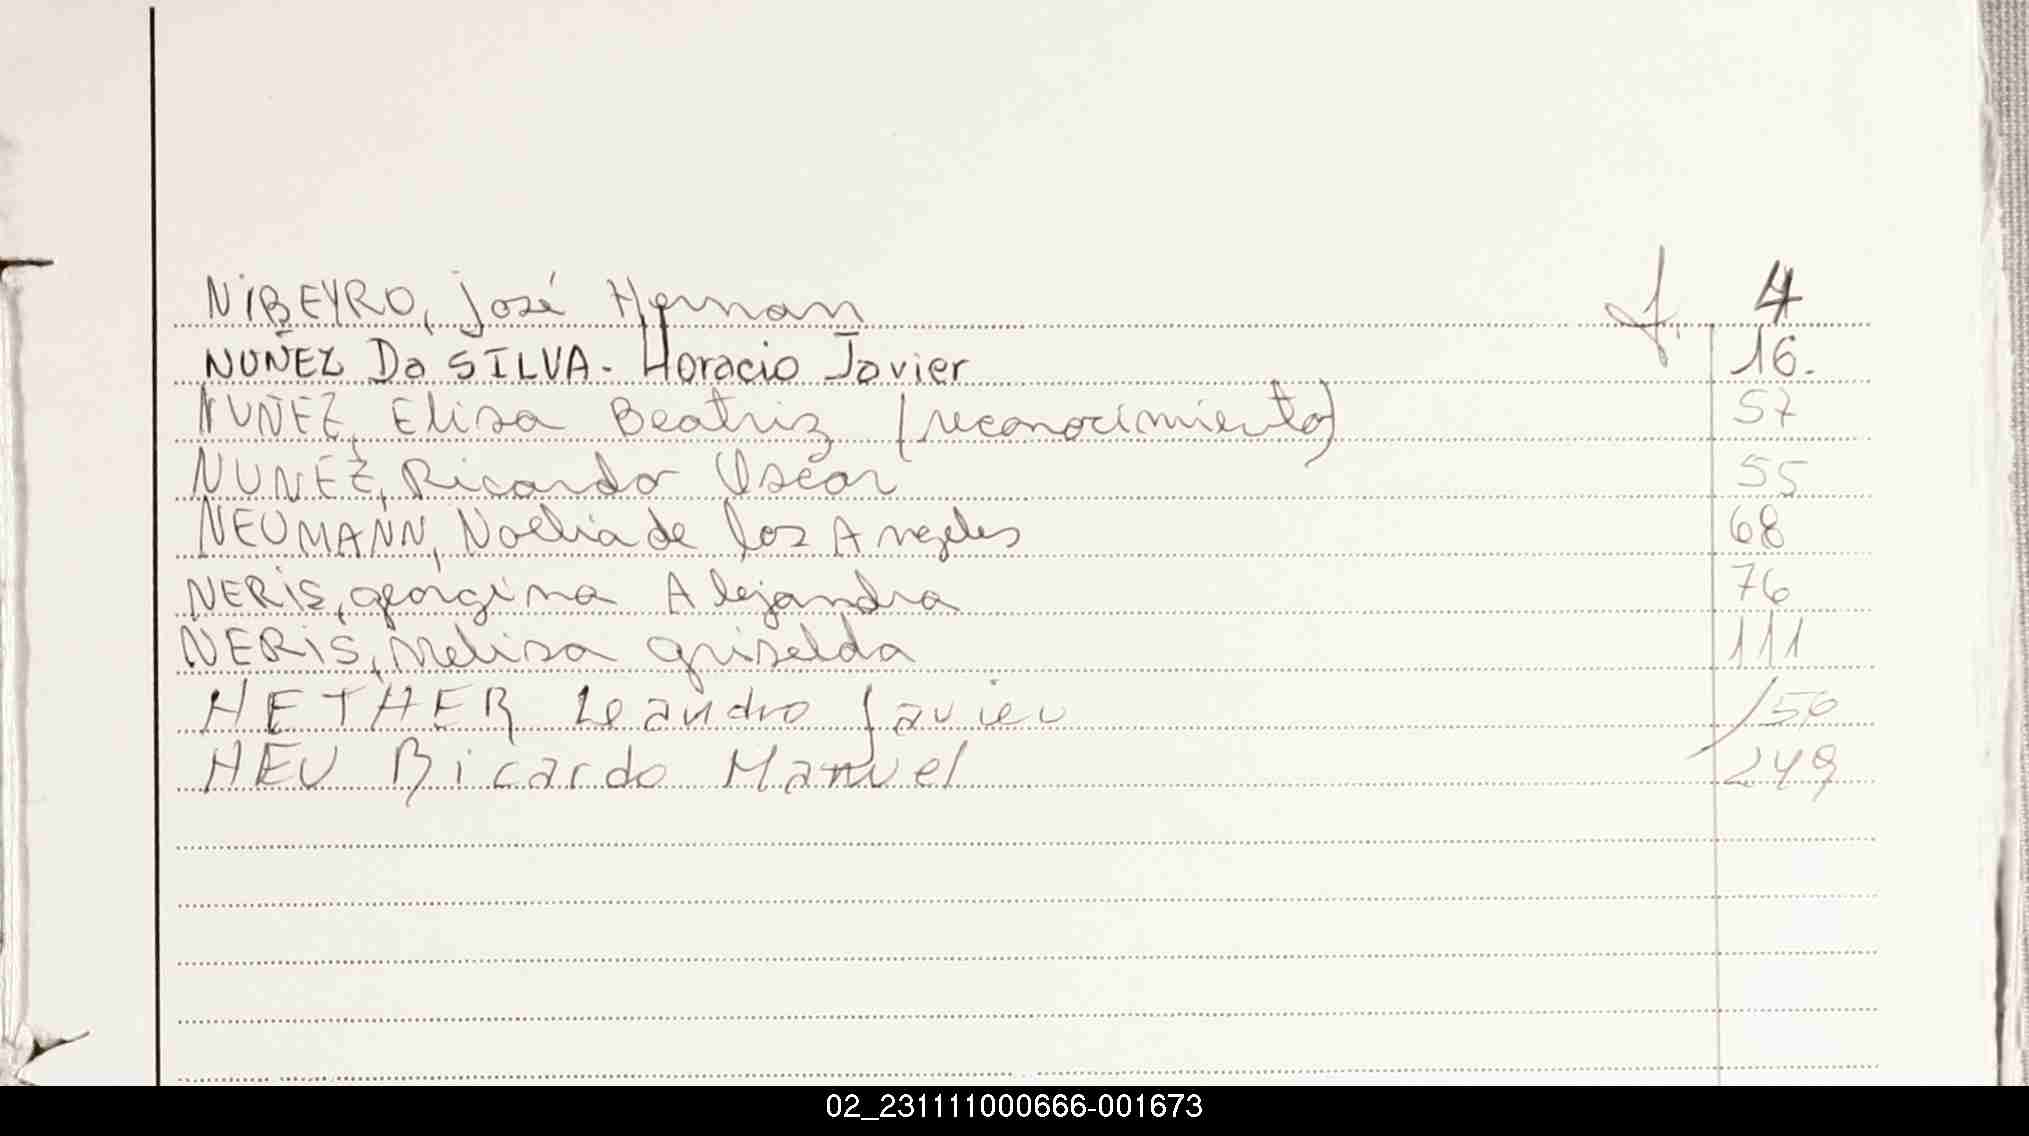 NIBEYRO, José Hernan f. 4
NUÑEZ Da SILVA. Horacio Javier 16.
NUÑEZ, Elisa Beatriz (reconocimiento) 57
NUNEZ, Ricardo Oscar 55
NEUMANN, Noelia de los Angeles 68
NERIS, georgina Alejandra 76
NERIS, Melisa griselda 111
NETHER Leandro Javier 150
NEU Ricardo Manuel 249
02_231111000666-001673